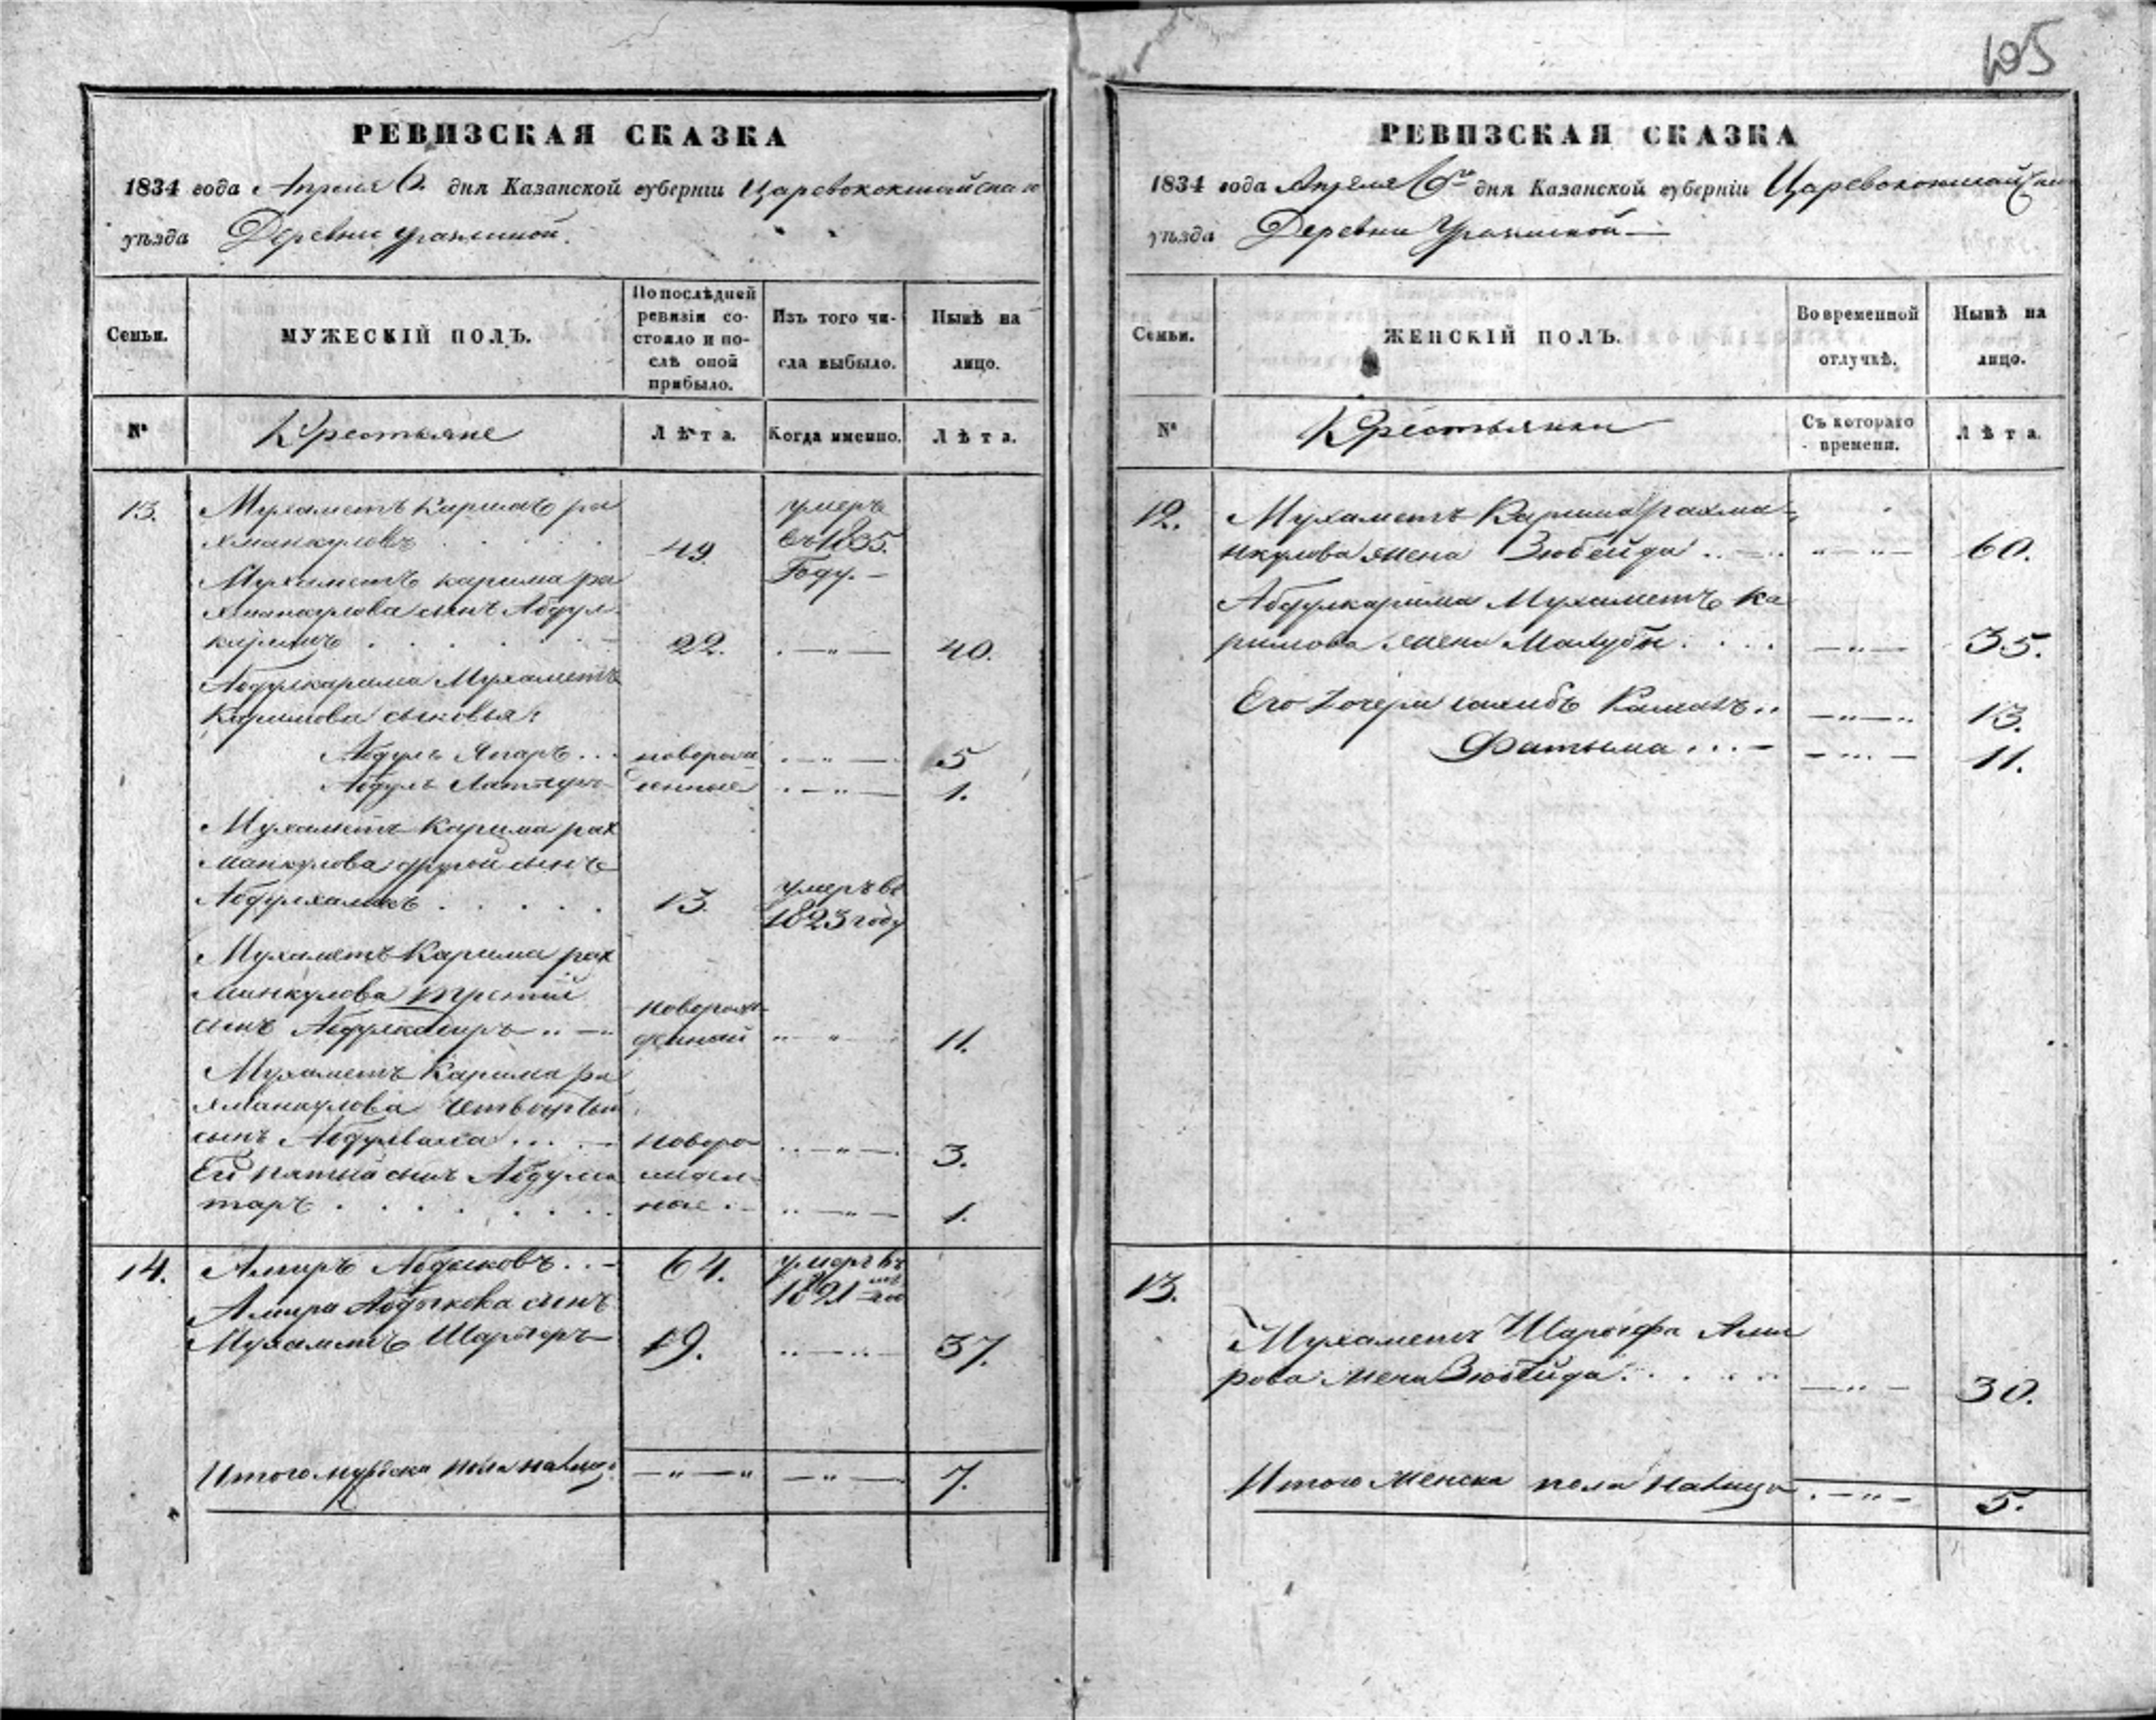 105
РЕВИЗСКАЯ СКАЗКА
1834 года Апреля 6 дня Казанской губернiи Царевококшайскаго
уѣзда Деревни
Семьи.
МУЖЕСКIЙ ПОЛЪ.
По послѣдней ревизiи со-
стояло и по-
слѣ оной
прибыло.
Изъ того чи-
сла выбыло.
Нынѣ на
лицо.
№
Крестьяне
Лѣта.
Когда именно.
Лѣта.
13.
Мухаметъ Каримъ ра
хманкуловъ . . . . 49. умеръ
въ 1835.
Году. —
Мухаметъ карима ра
хманкулова сынъ Абдул
каримъ . . . . 22. . — „ — 40.
Абдулкарима Мухаметъ
Каримова сыновья:
Абдулъ Япаръ . . . новорож . — „ — 5
Абдулъ денные . — „ — 1.
Мухаметъ Карима рах
манкулова другой сынъ
. . . . . 13. умеръ въ
1823 году
Мухаметъ Карима рах
манкулова третiй
сынъ . . — новорож
денный „ „ 11.
Мухаметъ Карима ра
хманкулова четвертый
сынъ . . . — новоро . . — „ — . 3.
Ей пятый сынъ Абдулса
таръ . . . . . . . жден-
ные . — . . — „ — 1.
14. Амиръ . . — 64. умеръ въ
1821 мъ го
Амира сынъ
Мухаметъ 19. . . — . . — 37.
Итого мужеска пола налицо — „ — „ — „ — 7.
РЕВИЗСКАЯ СКАЗКА
1834 года Апреля 6го дня Казанской губернiи Царевококшайскаго
уѣзда Деревни
Семьи.
ЖЕНСКIЙ ПОЛЪ.
Во временной
отлучкѣ.
Нынѣ на
лицо.
№
Крестьянки
Съ котораго
времени.
Лѣта.
12. Мухаметъ Карима рахма-
нкулова жена Зюбейда . . — „ — „ — 60.
Абдулкарима Мухаметъ Ка
римова жена . . . . — „ — 35.
Его дочери Камалъ . . — „ — „ 13.
Фатыма . . . — — „ — 11.
13.
Мухаметъ Ами
рова жена Зюбейда . . . . . — „ — 30.
Итого женска пола налицо . — „ — 5.